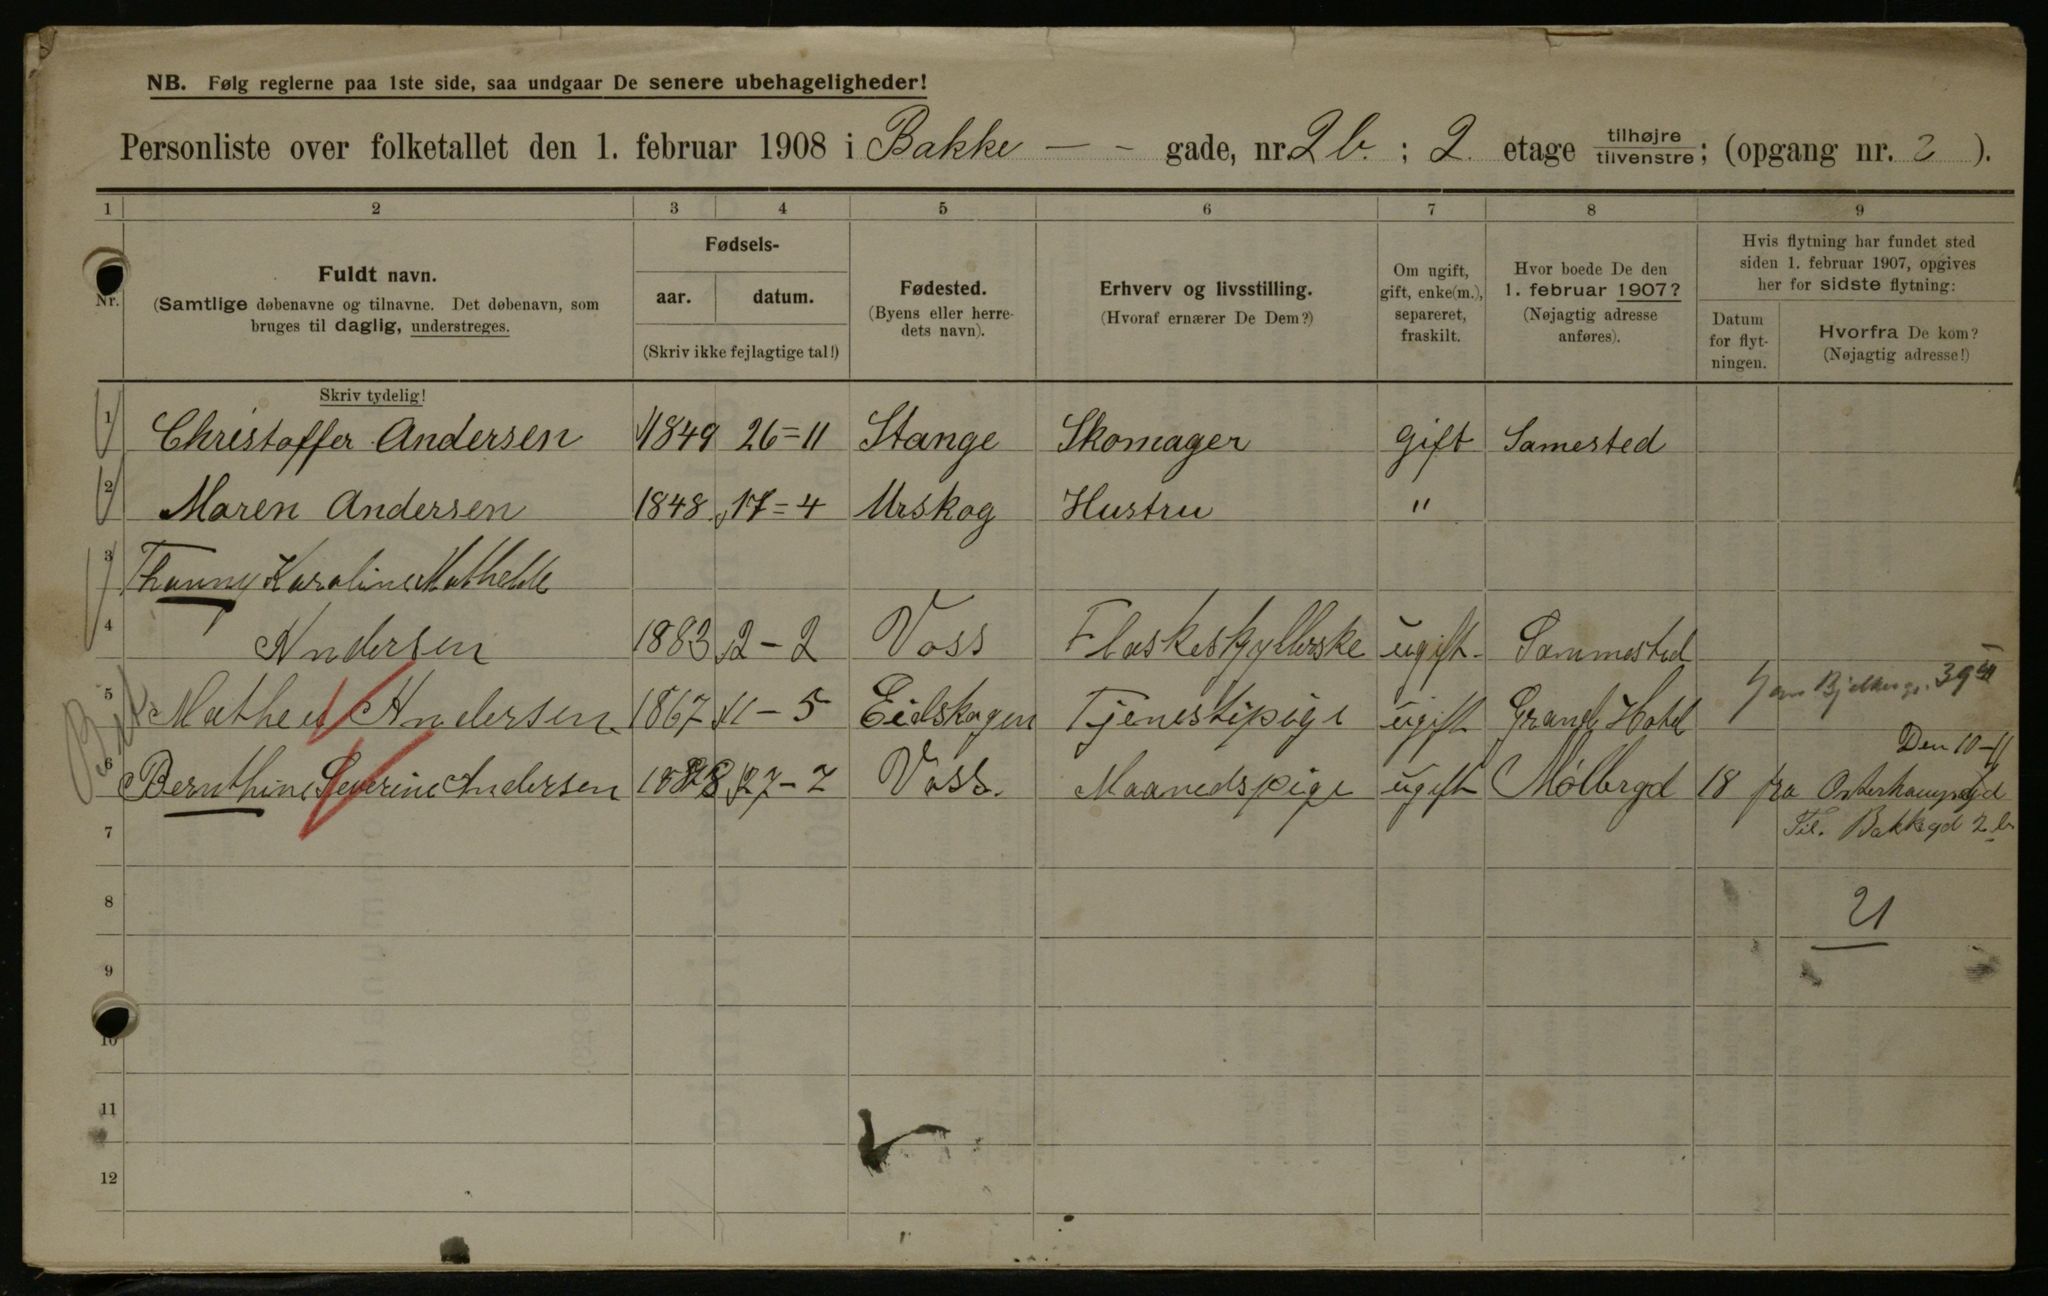 NB. Følg reglerne paa 1ste side, saa undgaar De senere ubehageligheder!
Personliste over folketallet den 1. februar 1908 i Bakke - - gade, nr. 2b. ; 2. etage tilhøjre / tilvenstre ; (opgang nr. 2 ).
1 2 3 4 5 6 7 8 9
Nr.
Fuldt navn.
(Samtlige døbenavne og tilnavne. Det døbenavn, som
bruges til daglig, understreges.
Skriv tydelig!
Fødsels-
aar. datum.
(Skriv ikke fejlagtige tal!)
Fødested.
(Byens eller herre-
dets navn).
Erhverv og livsstilling.
(Hvoraf ernærer De Dem?)
Om ugift,
gift, enke(m.),
separeret,
fraskilt.
Hvor boede De den
1. februar 1907?
(Nøjagtig adresse
anføres).
Hvis flytning har fundet sted
siden 1. februar 1907, opgives
her for sidste flytning:
Datum
for flyt-
ningen.
Hvorfra De kom?
(Nøjagtig adresse!)
1 Christoffer Andersen 1849 26=11 Stange Skomager Gift Samested
2 Maren Andersen 1848 17=4 Urskog Hustru "
3 Thanny Karoline Mathelde
4 Andersen 1883 2-2 Voss Flaskeskyllerske ugift Sammested
39
5 Andersen 1867 11-5 Eidskogen Tjenestipige ugift Grand Hotel
Den 10-11
6 Bernthine Severine Andersen 1888 27-2 Voss. Maanedspige ugift Mølbergd 18 fra
7 Til. Bakkegd 2b
8 21
9
10
11
12